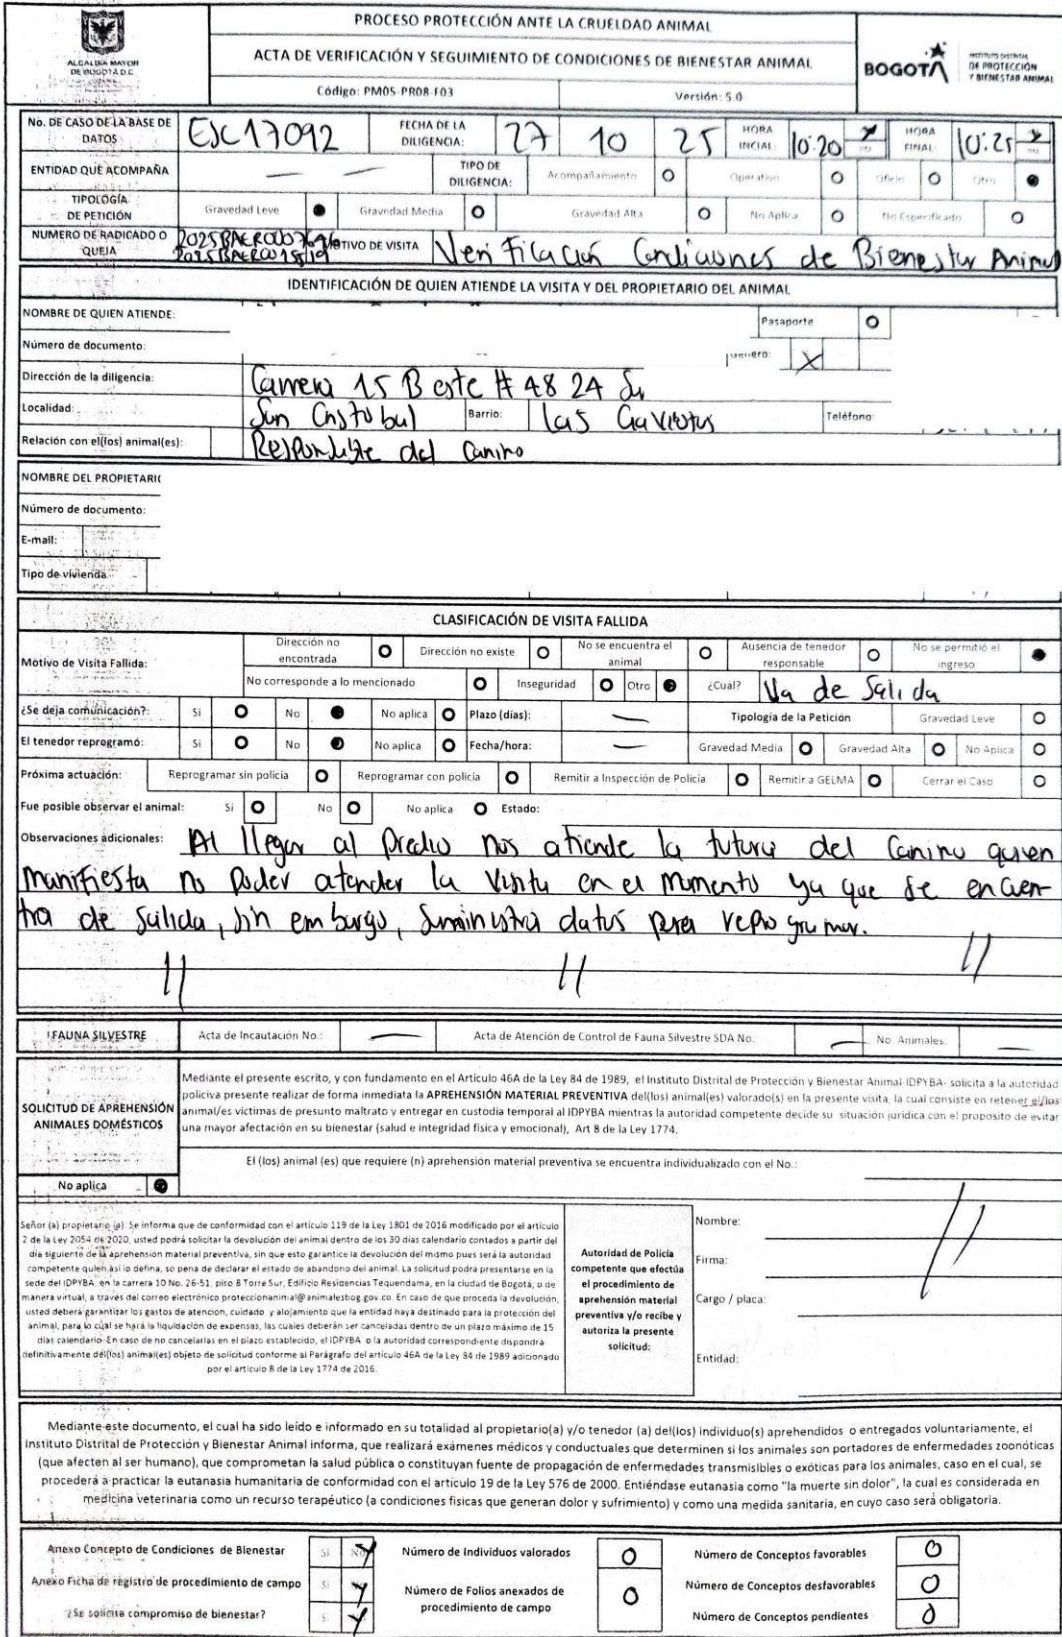 ALCALDÍA MAYOR
DE BOGOTÁ D.C.
PROCESO PROTECCIÓN ANTE LA CRUELDAD ANIMAL
ACTA DE VERIFICACIÓN Y SEGUIMIENTO DE CONDICIONES DE BIENESTAR ANIMAL
Código: PM05-PR08-F03 Versión: 5.0
BOGOTÁ
INSTITUTO DISTRITAL
DE PROTECCIÓN
Y BIENESTAR ANIMAL
No. DE CASO DE LA BASE DE DATOS ESC17092 FECHA DE LA DILIGENCIA: 27 10 25 HORA INCIAL: 10:20 HORA FINAL: 10:25
ENTIDAD QUE ACOMPAÑA — — TIPO DE DILIGENCIA: Acompañamiento Operativo Oficio Otro
TIPOLOGÍA DE PETICIÓN Gravedad Leve Gravedad Media Gravedad Alta No Aplica No Especificado
NUMERO DE RADICADO O QUEJA MOTIVO DE VISITA Verificación Condiciones de Bienestar Animal
IDENTIFICACIÓN DE QUIEN ATIENDE LA VISITA Y DEL PROPIETARIO DEL ANIMAL
NOMBRE DE QUIEN ATIENDE: Pasaporte
Número de documento: X
Dirección de la diligencia: Carrera 15 B este # 48 24 Sur
Localidad: San Cristobal Barrio: las Gaviotas Teléfono:
Relación con el(los) animal(es): Responsable del Canino
NOMBRE DEL PROPIETARI
Número de documento:
E-mail:
Tipo de vivienda
CLASIFICACIÓN DE VISITA FALLIDA
Motivo de Visita Fallida: Dirección no encontrada Dirección no existe No se encuentra el animal Ausencia de tenedor responsable No se permitió el ingreso
No corresponde a lo mencionado Inseguridad Otro ¿Cuál? Va de Salida
¿Se deja comunicación?: Si No No aplica Plazo (días): — Tipología de la Petición Gravedad Leve
El tenedor reprogramó: Si No No aplica Fecha/hora: — Gravedad Media Gravedad Alta No Aplica
Próxima actuación: Reprogramar sin policía Reprogramar con policía Remitir a Inspección de Policía Remitir a GELMA Cerrar el Caso
Fue posible observar el animal: Si No No aplica Estado:
Observaciones adicionales: Al llegar al predio nos atiende la tutora del Canino quien
manifiesta no poder atender la visita en el momento ya que se encuen-
tra de salida, sin embargo, suministra datos para reprogramar.
// // //
FAUNA SILVESTRE Acta de Incautación No.: — Acta de Atención de Control de Fauna Silvestre SDA No. — No. Animales: —
SOLICITUD DE APREHENSIÓN ANIMALES DOMÉSTICOS
Mediante el presente escrito, y con fundamento en el Artículo 46A de la Ley 84 de 1989, el Instituto Distrital de Protección y Bienestar Animal-IDPYBA- solicita a la autoridad
policiva presente realizar de forma inmediata la APREHENSIÓN MATERIAL PREVENTIVA del(los) animal(es) valorado(s) en la presente visita, la cual consiste en retener el/los
animal/es víctimas de presunto maltrato y entregar en custodia temporal al IDPYBA mientras la autoridad competente decide su situación jurídica con el proposito de evitar
una mayor afectación en su bienestar (salud e integridad física y emocional), Art 8 de la Ley 1774.
El (los) animal (es) que requiere (n) aprehensión material preventiva se encuentra individualizado con el No.:
No aplica
Señor (a) propietario (a): Se informa que de conformidad con el artículo 119 de la Ley 1801 de 2016 modificado por el artículo
2 de la Ley 2054 de 2020, usted podrá solicitar la devolución del animal dentro de los 30 días calendario contados a partir del
día siguiente de la aprehensión material preventiva, sin que esto garantice la devolución del mismo pues será la autoridad
competente quien así lo defina, so pena de declarar el estado de abandono del animal. La solicitud podrá presentarse en la
sede del IDPYBA, en la carrera 10 No. 26-51, piso 8 Torre Sur, Edificio Residencias Tequendama, en la ciudad de Bogotá, o de
manera virtual, a través del correo electrónico proteccionanimal@animalesbog.gov.co. En caso de que proceda la devolución,
usted deberá garantizar los gastos de atencion, cuidado y alojamiento que la entidad haya destinado para la protección del
animal, para lo cual se hará la liquidación de expensas, las cuales deberán ser canceladas dentro de un plazo máximo de 15
días calendario. En caso de no cancelarlas en el plazo establecido, el IDPYBA o la autoridad correspondiente dispondrá
definitivamente del(los) animal(es) objeto de solicitud conforme al Parágrafo del artículo 46A de la Ley 84 de 1989 adicionado
por el artículo 8 de la Ley 1774 de 2016.
Autoridad de Policía
competente que efectúa
el procedimiento de
aprehensión material
preventiva y/o recibe y
autoriza la presente
solicitud:
Nombre:
Firma:
Cargo / placa:
Entidad:
//
Mediante este documento, el cual ha sido leído e informado en su totalidad al propietario(a) y/o tenedor (a) del(los) individuo(s) aprehendidos o entregados voluntariamente, el
Instituto Distrital de Protección y Bienestar Animal informa, que realizará exámenes médicos y conductuales que determinen si los animales son portadores de enfermedades zoonóticas
(que afecten al ser humano), que comprometan la salud pública o constituyan fuente de propagación de enfermedades transmisibles o exóticas para los animales, caso en el cual, se
procederá a practicar la eutanasia humanitaria de conformidad con el artículo 19 de la Ley 576 de 2000. Entiéndase eutanasia como "la muerte sin dolor", la cual es considerada en
medicina veterinaria como un recurso terapéutico (a condiciones físicas que generan dolor y sufrimiento) y como una medida sanitaria, en cuyo caso será obligatoria.
Anexo Concepto de Condiciones de Bienestar Si No Número de Individuos valorados 0 Número de Conceptos favorables 0
Anexo Ficha de registro de procedimiento de campo Si Número de Folios anexados de procedimiento de campo 0 Número de Conceptos desfavorables 0
¿Se solicita compromiso de bienestar? Número de Conceptos pendientes 0